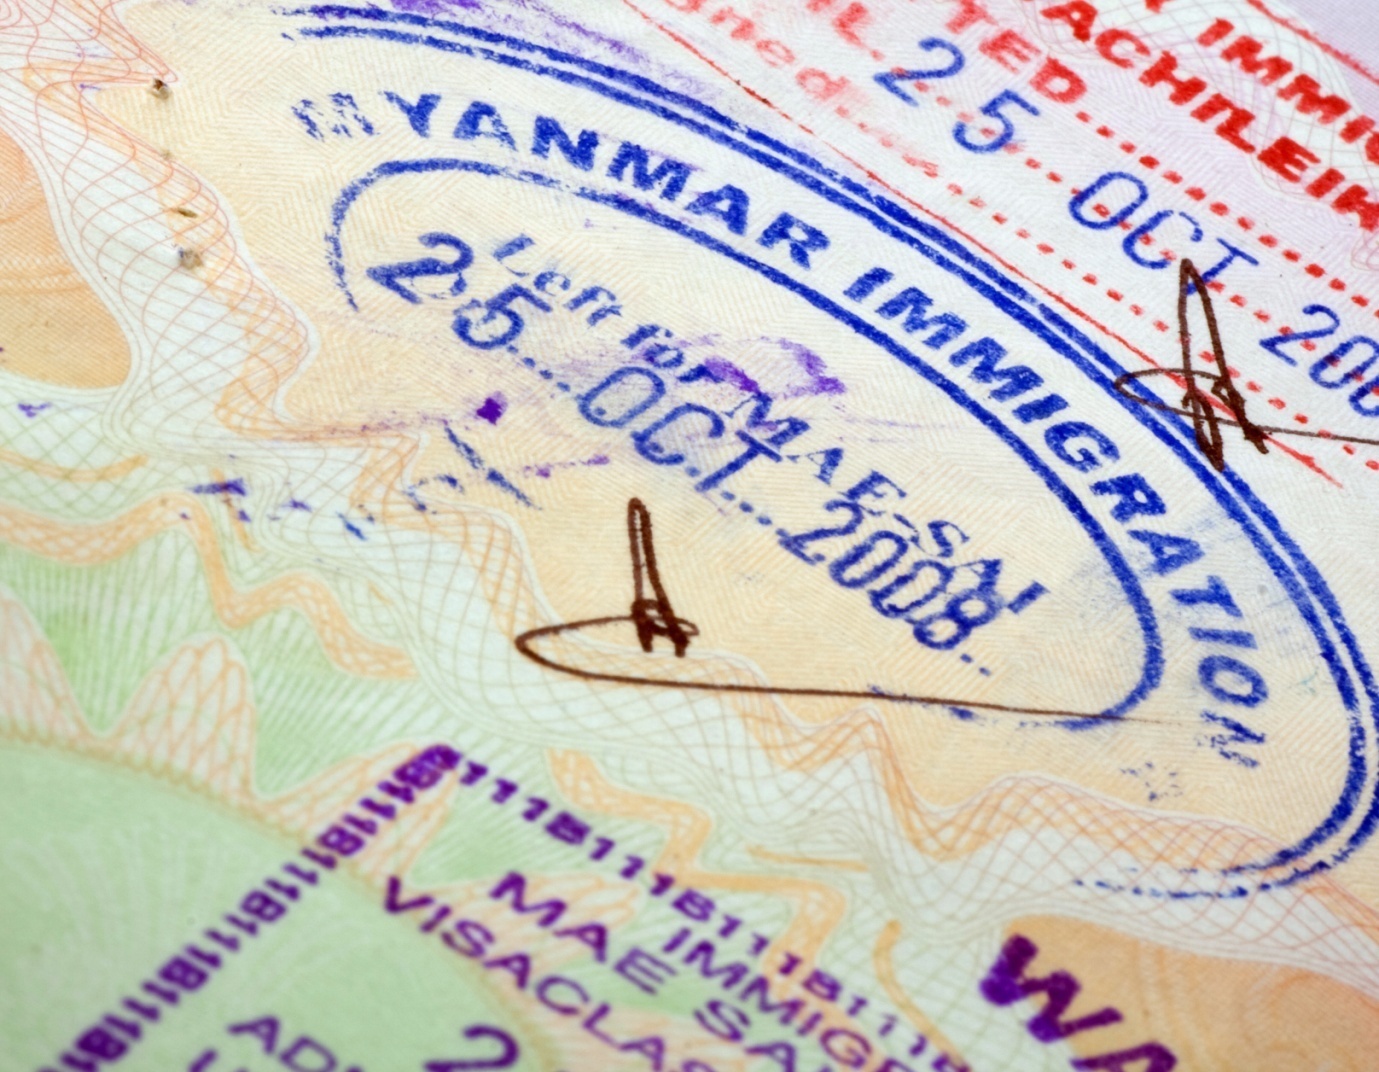 IMMI
TACHILEIK
TED
25 OCT 200
MYANMAR IMMIGRATION
Left for MAE-SAI
25 OCT 2008
B111B111B111B111B11
IMMIGR
MAE SA
VISACLAS
AD
2
WA